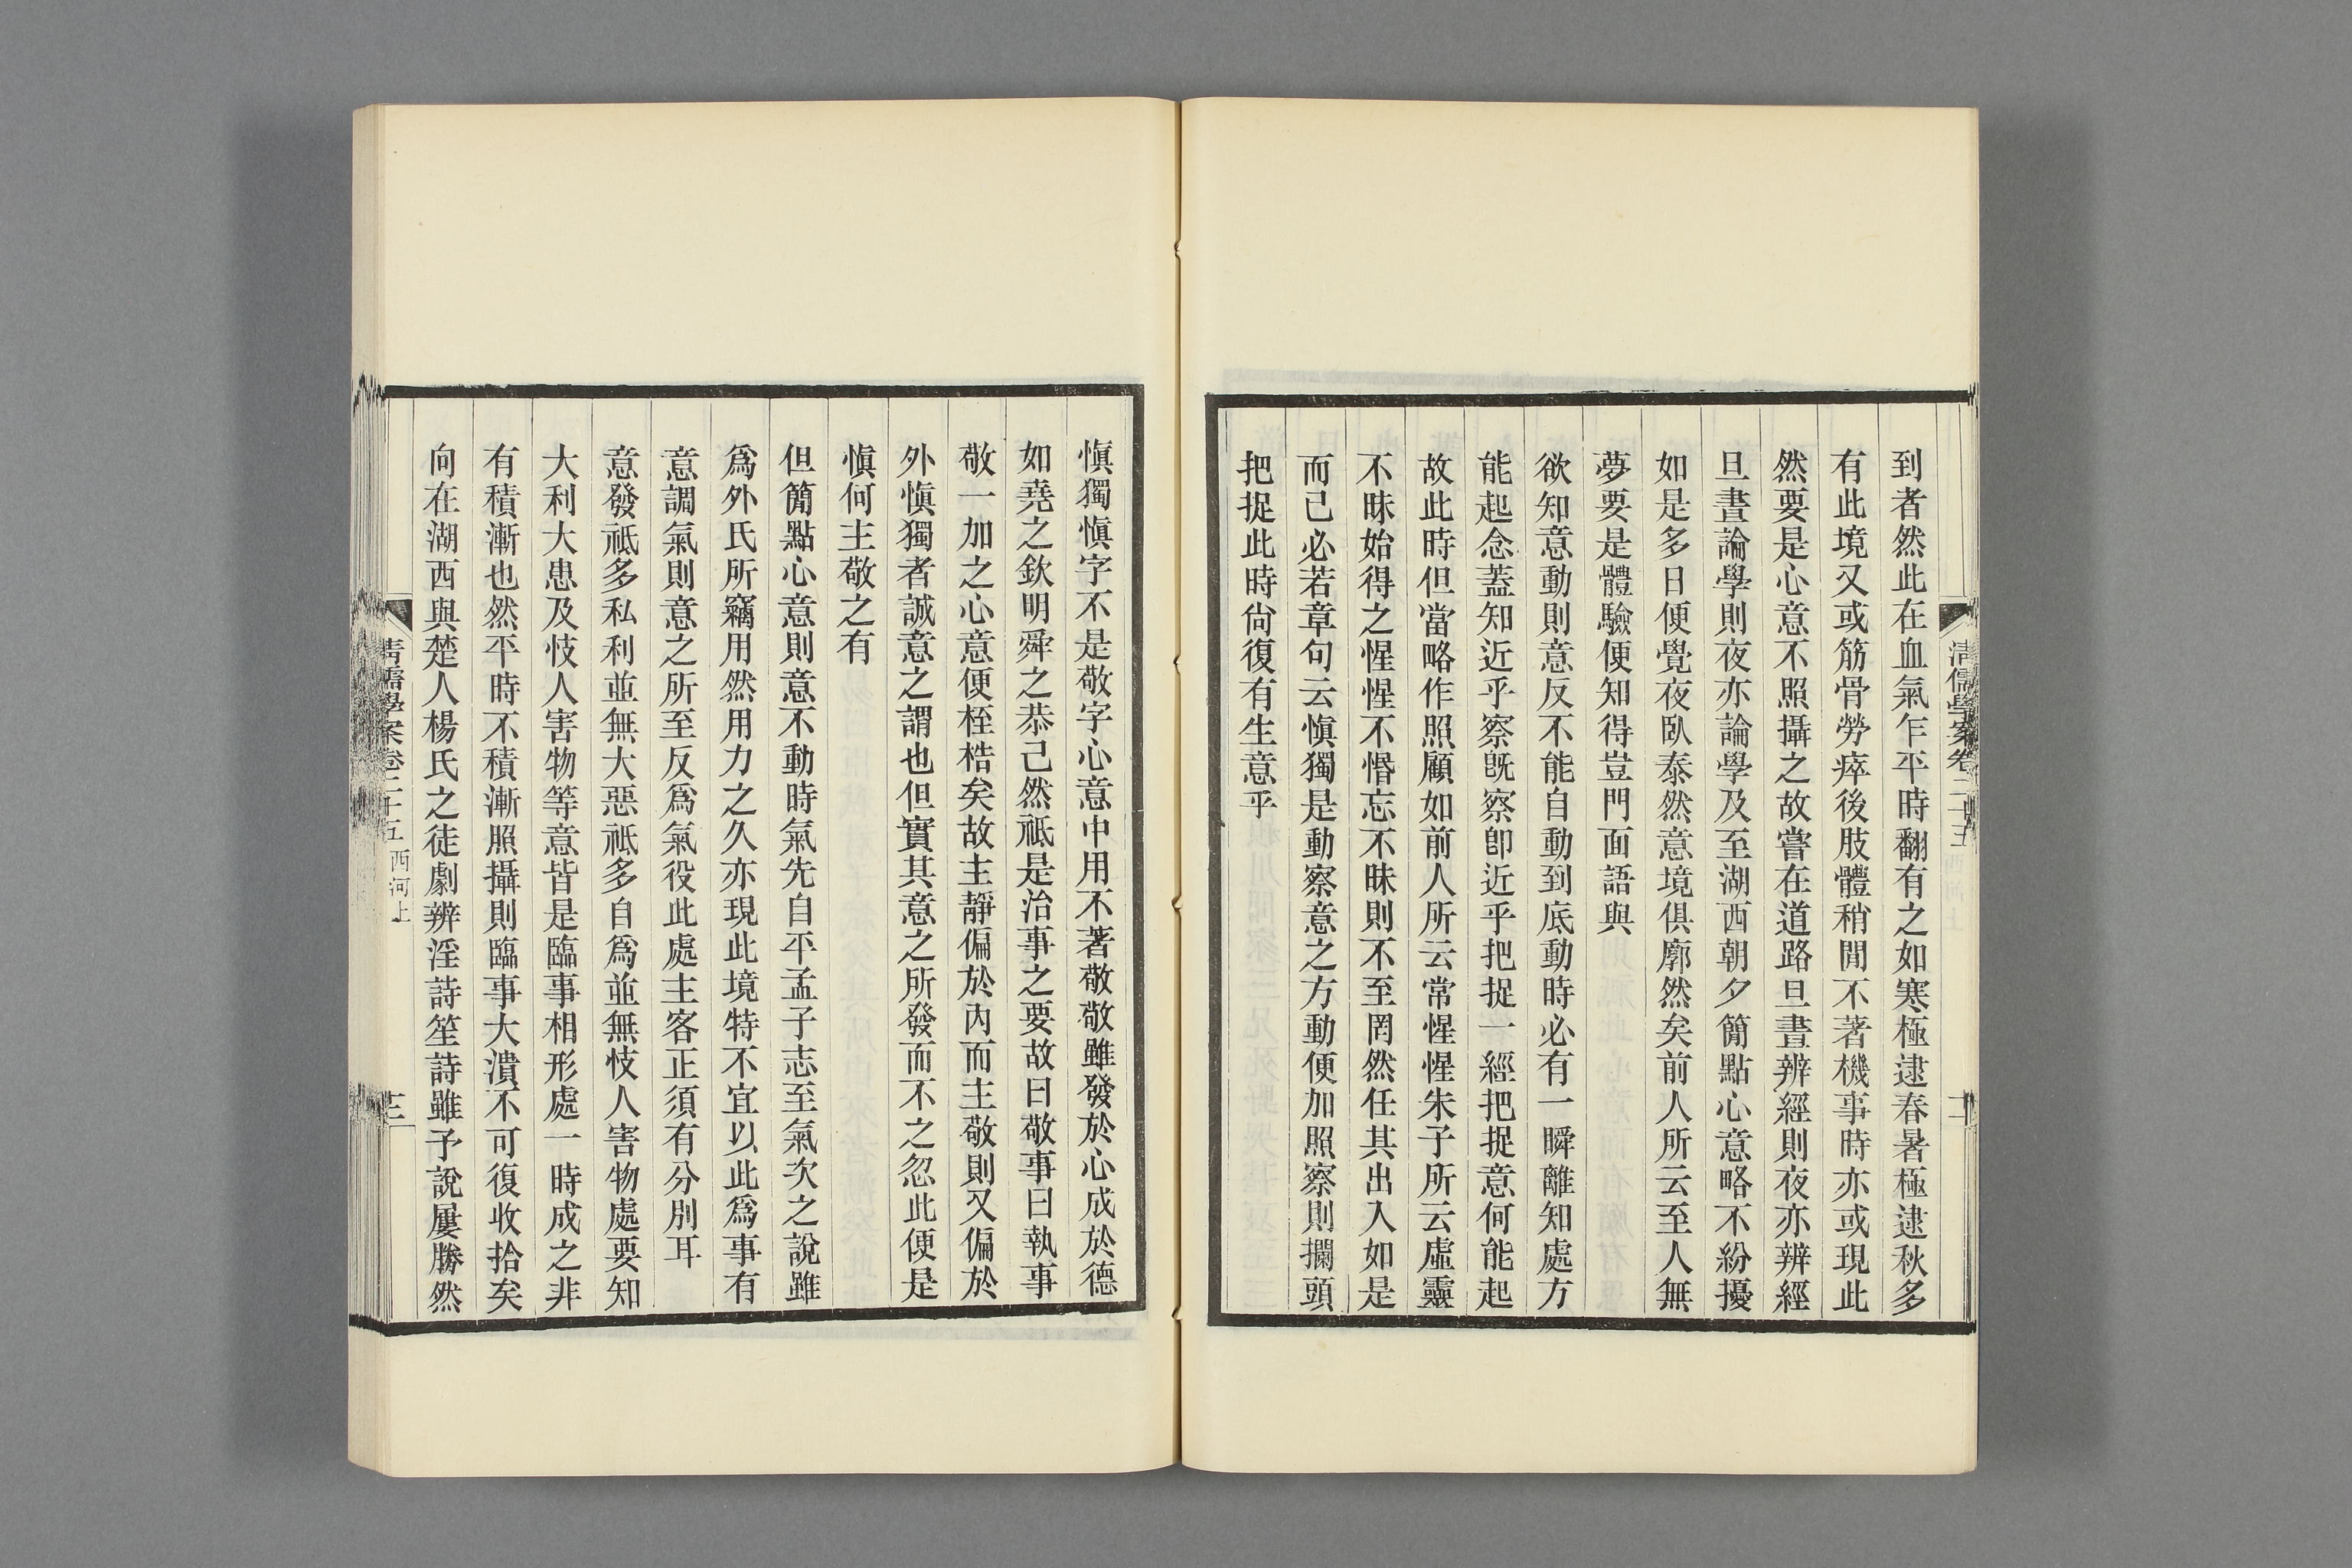 清儒學案卷二十五
到者然此在血氣乍平時翻有之如寒極逮春暑極逮秋多
有此境又或筋骨勞瘁後肢體稍閒不著機事時亦或現此
然要是心意不照攝之故嘗在道路旦晝辨經則夜亦辨經
旦晝論學則夜亦論學及至湖西朝夕簡點心意略不紛擾
如是多日便覺夜臥泰然意境俱廓然矣前人所云至人無
夢要是體驗便知得豈門面語與
欲知意動則意反不能自動到底動時必有一瞬離知處方
能起念蓋知近乎察旣察卽近乎把捉一經把捉意何能起
故此時但當略作照顧如前人所云常惺惺朱子所云虛靈
不昧始得之惺惺不惛忘不昧則不至罔然任其出入如是
而已必若章句云愼獨是動察意之方動便加照察則攔頭
把捉此時尙復有生意乎
愼獨愼字不是敬字心意中用不著敬敬雖發於心成於德
如堯之欽明舜之恭己然祗是治事之要故曰敬事曰執事
敬一加之心意便桎梏矣故主靜偏於內而主敬則又偏於
外愼獨者誠意之謂也但實其意之所發而不之忽此便是
愼何主敬之有
但簡點心意則意不動時氣先自平孟子志至氣次之說雖
爲外氏所竊用然用力之久亦現此境特不宜以此爲事有
意調氣則意之所至反爲氣役此處主客正須有分別耳
意發祗多私利並無大惡祗多自爲並無忮人害物處要知
大利大患及忮人害物等意皆是臨事相形處一時成之非
有積漸也然平時不積漸照攝則臨事大潰不可復收拾矣
向在湖西與楚人楊氏之徒劇辨淫詩笙詩雖予說屢勝然
清儒學案卷二十五 西河上